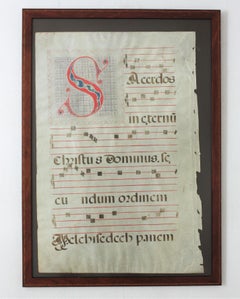 SAcerdos
in eternū
Christus Dominus, sc̄
cu ndum ordinem
Melchisedech panem